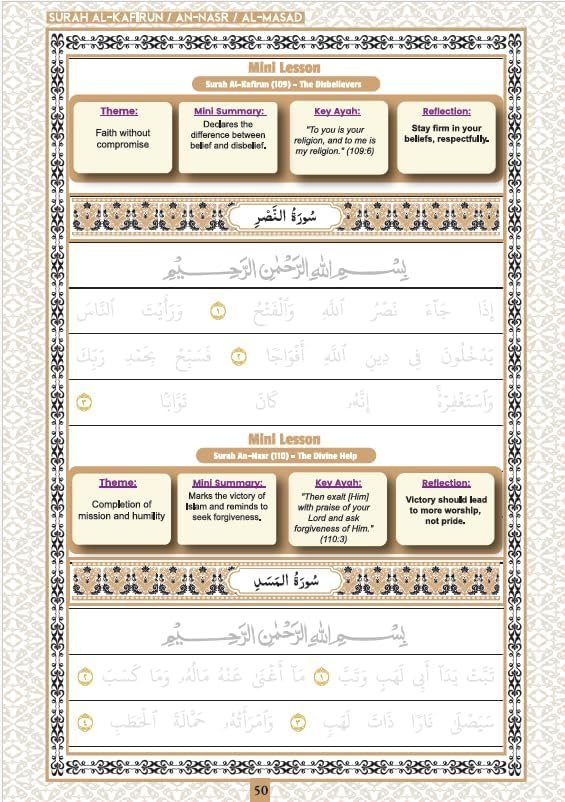 SURAH AL-KAFIRUN / AN-NASR / AL-MASAD
Mini Lesson
Surah Al-Kafirun (109) – The Disbelievers
Theme:
Faith without
compromise
Mini Summary:
Declares the
difference between
belief and disbelief.
Key Ayah:
"To you is your
religion, and to me is
my religion." (109:6)
Reflection:
Stay firm in your
beliefs, respectfully.
سُورَةُ النَّصْرِ
بِسْمِ اللهِ الرَّحْمٰنِ الرَّحِيْمِ
إِذَا جَآءَ نَصْرُ ٱللَّهِ وَٱلْفَتْحُ ١ وَرَأَيْتَ ٱلنَّاسَ
يَدْخُلُونَ فِى دِينِ ٱللَّهِ أَفْوَاجًا ٢ فَسَبِّحْ بِحَمْدِ رَبِّكَ
وَٱسْتَغْفِرْهُ إِنَّهُۥ كَانَ تَوَّابًۢا ٣
Mini Lesson
Surah An-Nasr (110) – The Divine Help
Theme:
Completion of
mission and humility
Mini Summary:
Marks the victory of
Islam and reminds to
seek forgiveness.
Key Ayah:
"Then exalt [Him]
with praise of your
Lord and ask
forgiveness of Him."
(110:3)
Reflection:
Victory should lead
to more worship,
not pride.
سُورَةُ المَسَدِ
بِسْمِ اللهِ الرَّحْمٰنِ الرَّحِيْمِ
تَبَّتْ يَدَآ أَبِى لَهَبٍ وَتَبَّ ١ مَآ أَغْنَىٰ عَنْهُ مَالُهُۥ وَمَا كَسَبَ ٢
سَيَصْلَىٰ نَارًا ذَاتَ لَهَبٍ ٣ وَٱمْرَأَتُهُۥ حَمَّالَةَ ٱلْحَطَبِ ٤
50